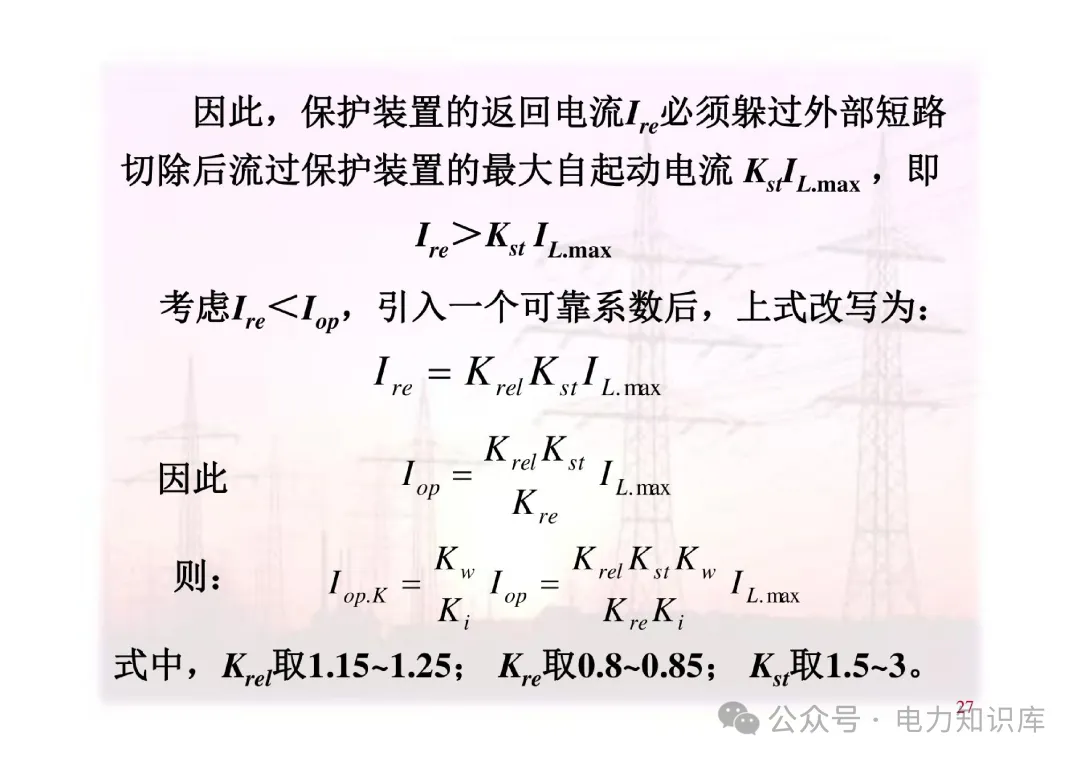 因此，保护装置的返回电流Ire必须躲过外部短路
切除后流过保护装置的最大自起动电流 KstIL.max ，即
Ire＞Kst IL.max
考虑Ire＜Iop，引入一个可靠系数后，上式改写为：
I re = K rel K st I L.max
因此 I op = (K rel K st / K re) I L.max
则： I op.K = (K w / K i) I op = (K rel K st K w / K re K i) I L.max
式中，Krel取1.15~1.25； Kre取0.8~0.85； Kst取1.5~3。
27
公众号 · 电力知识库